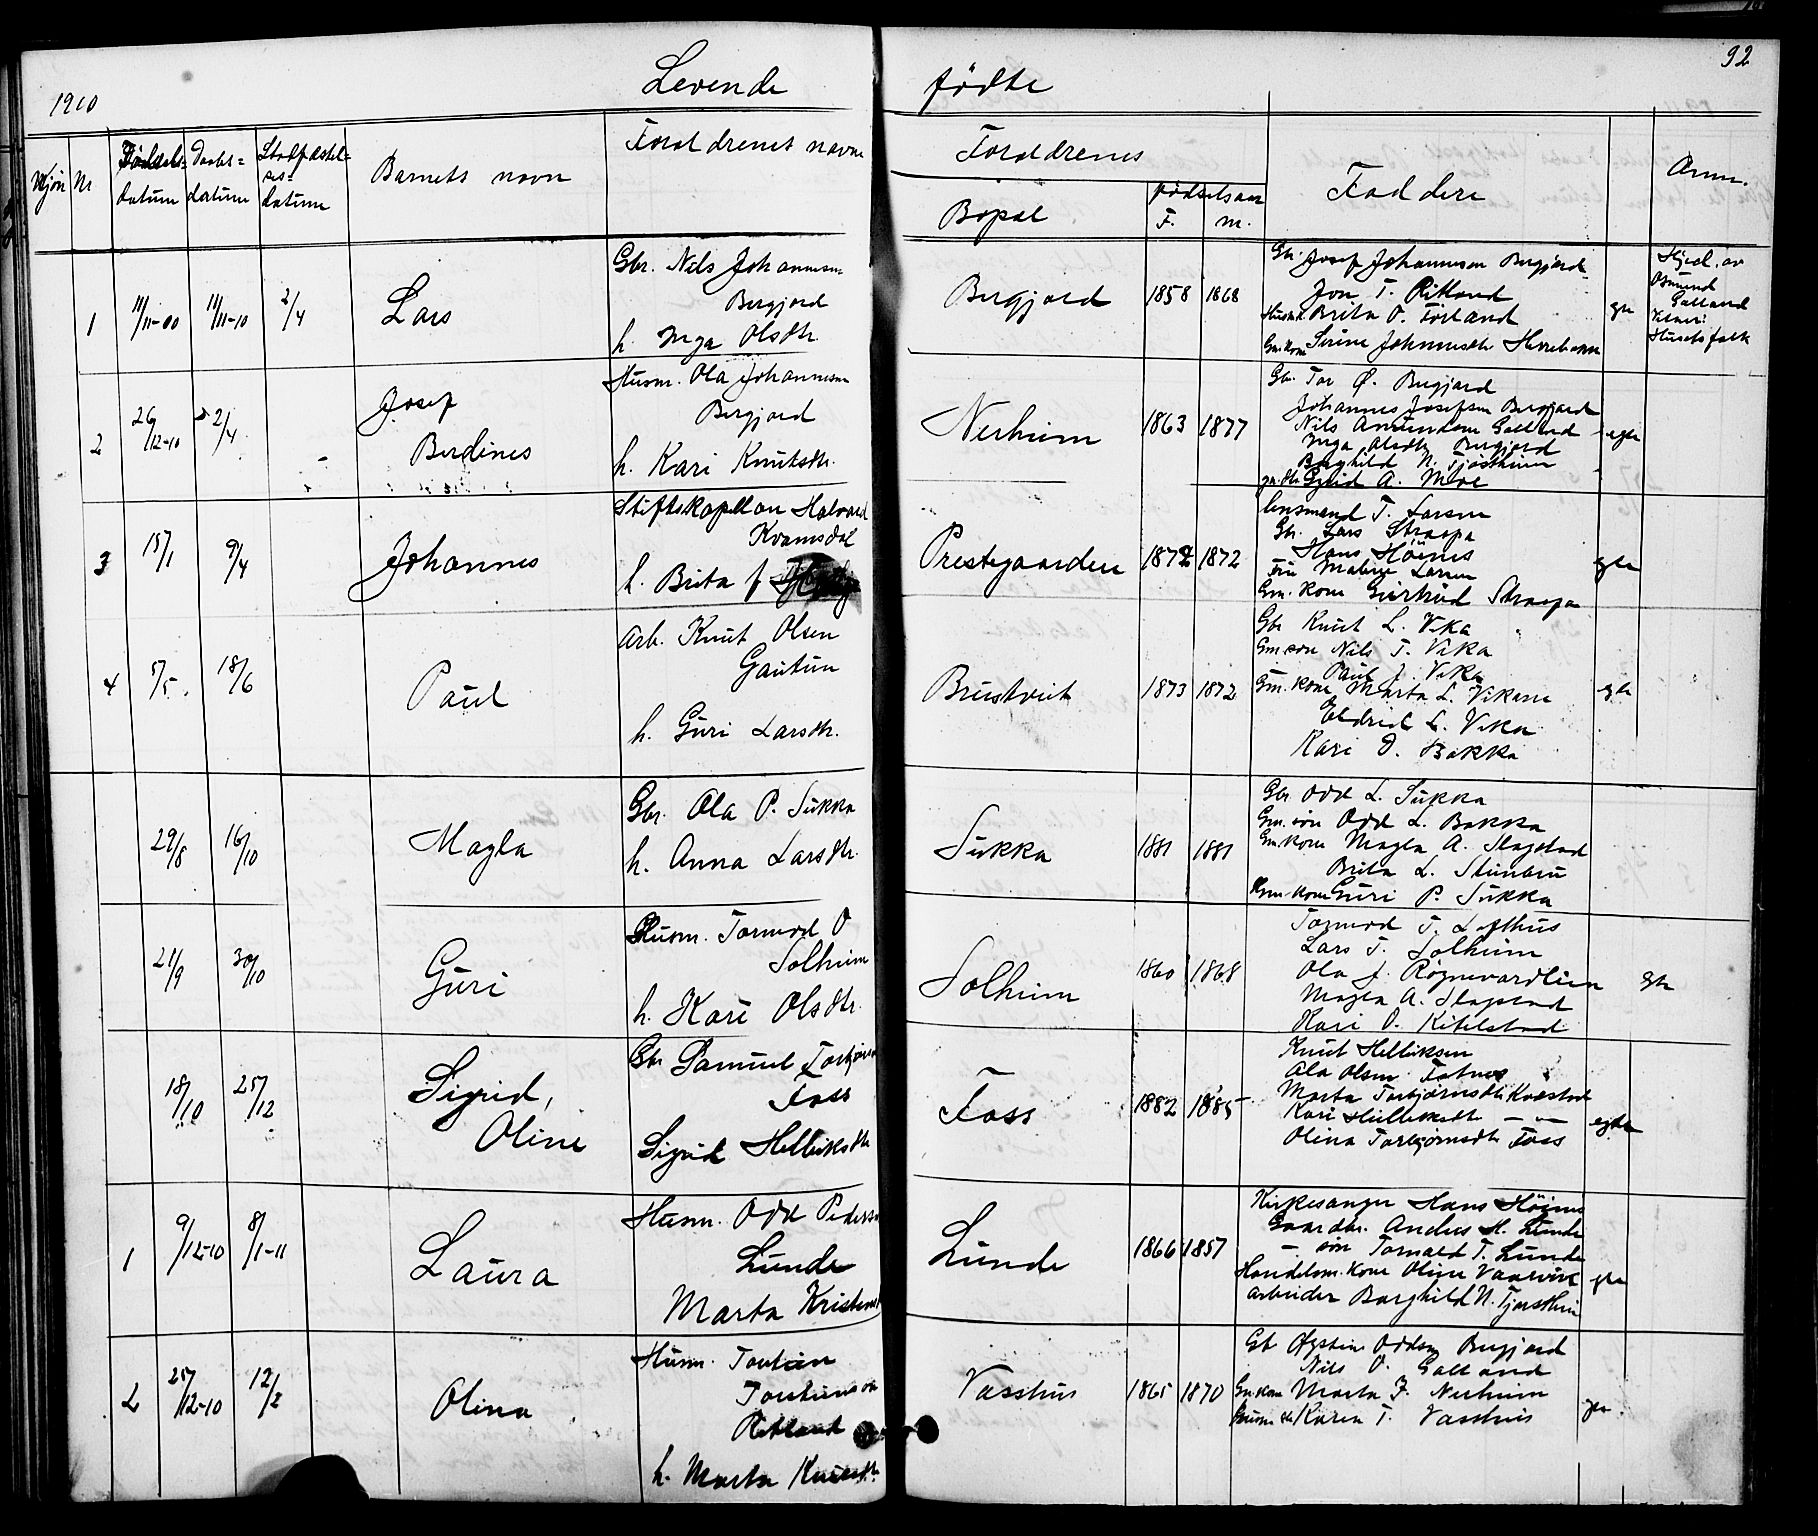 92
1910 Levende fødte
Nr Fødsels- datum Daabs- datum Stadfæstel- ses- datum Barnets navn Forældrenes navne
Forældrenes Bopæl Fødselsaar F. M. Faddere Anm.
1 11/11-00 11/11-10 2/4 Lars
Gbr. Nils Johannesen
Bergjord
h. Inga Olsdtr.
Bergjord 1858 1868
Gbr. Josef Johannesen Bergjord
Jon T. Ritland
Brita O. Førland
Serine Johannesdtr
Hjed. av
Osmund
Galland
Husets folk
2 26/12-10 2/4 Josef
Berdines
Husm. Ola Johannesen
Bergjord
h. Kari Knutsdtr.
Nerheim 1863 1877 egte
Gbr. Tor Ø. Bergjord
Johannes Josefsen Bergjord
Nils Amundsen Galland
Inga Olsdtr Bergjord
Borghild N. Tjostheim
A. Moe
3 15/1 9/4 Johannes
Stiftskapellan Halvard
Kvamsdal
h. Brita f.
Prestegaarden 1872 1872 egte
Lensmand T. Larsen
Gbr. Lars Straapa
Hans Höines
Fru Maline Larsen
Gm. Kone Giertrud Straapa
4 5/5 18/6 Paul
Arb. Knut Olsen
Gautun
h. Guri Larsdtr.
Brustveit 1873 1872 egte
Gbr Knut L. Vika
Gm. søn Nils T. Vika
Paul J. Vika
Gm. kone Marta L. Vikane
Eldrid L. Vika
Kari O. Bakka
29/8 16/10 Magla
Gbr. Ola P. Sukka
h. Anna Larsdtr.
Sukka 1881 1881
Gbr Odd L. Sukka
Gm. søn Odd L. Bakka
Gm. kone Magla A. Slagstad
Brita L. Steinbru
Gm. kone Guri P. Sukka
21/9 30/10 Guri
Husm. Tormod O
Solheim
h. Kari Olsdtr.
Solheim 1860 1868 egte
Tormod T. Lofthus
Lars T. Solheim
Ola J. Røgnevardlien
Magla A. Slagstad
Kari O. Kitelstad
18/10 25/12 Sigrid,
Oline
Gbr Samuel Torbjørnsen
Foss
Sigrid Helleiksdtr
Foss 1882 1885 egte
Knut Helleiksen
Ola Olsen Fatnes
Marta Torbjørnsdtr Kvæstad
Kari Helleiksdtr — —
Olina Torbjørnsdtr Foss
1 9/12-10 8/1-11 Laura
Husm. Odd Pedersen
Lunde
Marta
Lunde 1866 1857 egte
Kirkesanger Hans Höines
Gaardbr. Anders H. Lunde
— søn Tormod T. Lunde
Handelsm. kone Oline Vaarvik
arbeider Borghild N. Tjostheim
2 25/12-10 12/2 Olina
Husm. Torstein
Torsteinson
Ritland
h. Marta Knutsdtr.
Vasshus 1865 1870
Gb Øystein Oddsen Bergjord
Nils O. Galland
Gm. kone Marta F. Nerheim
Karen T. Vasshus